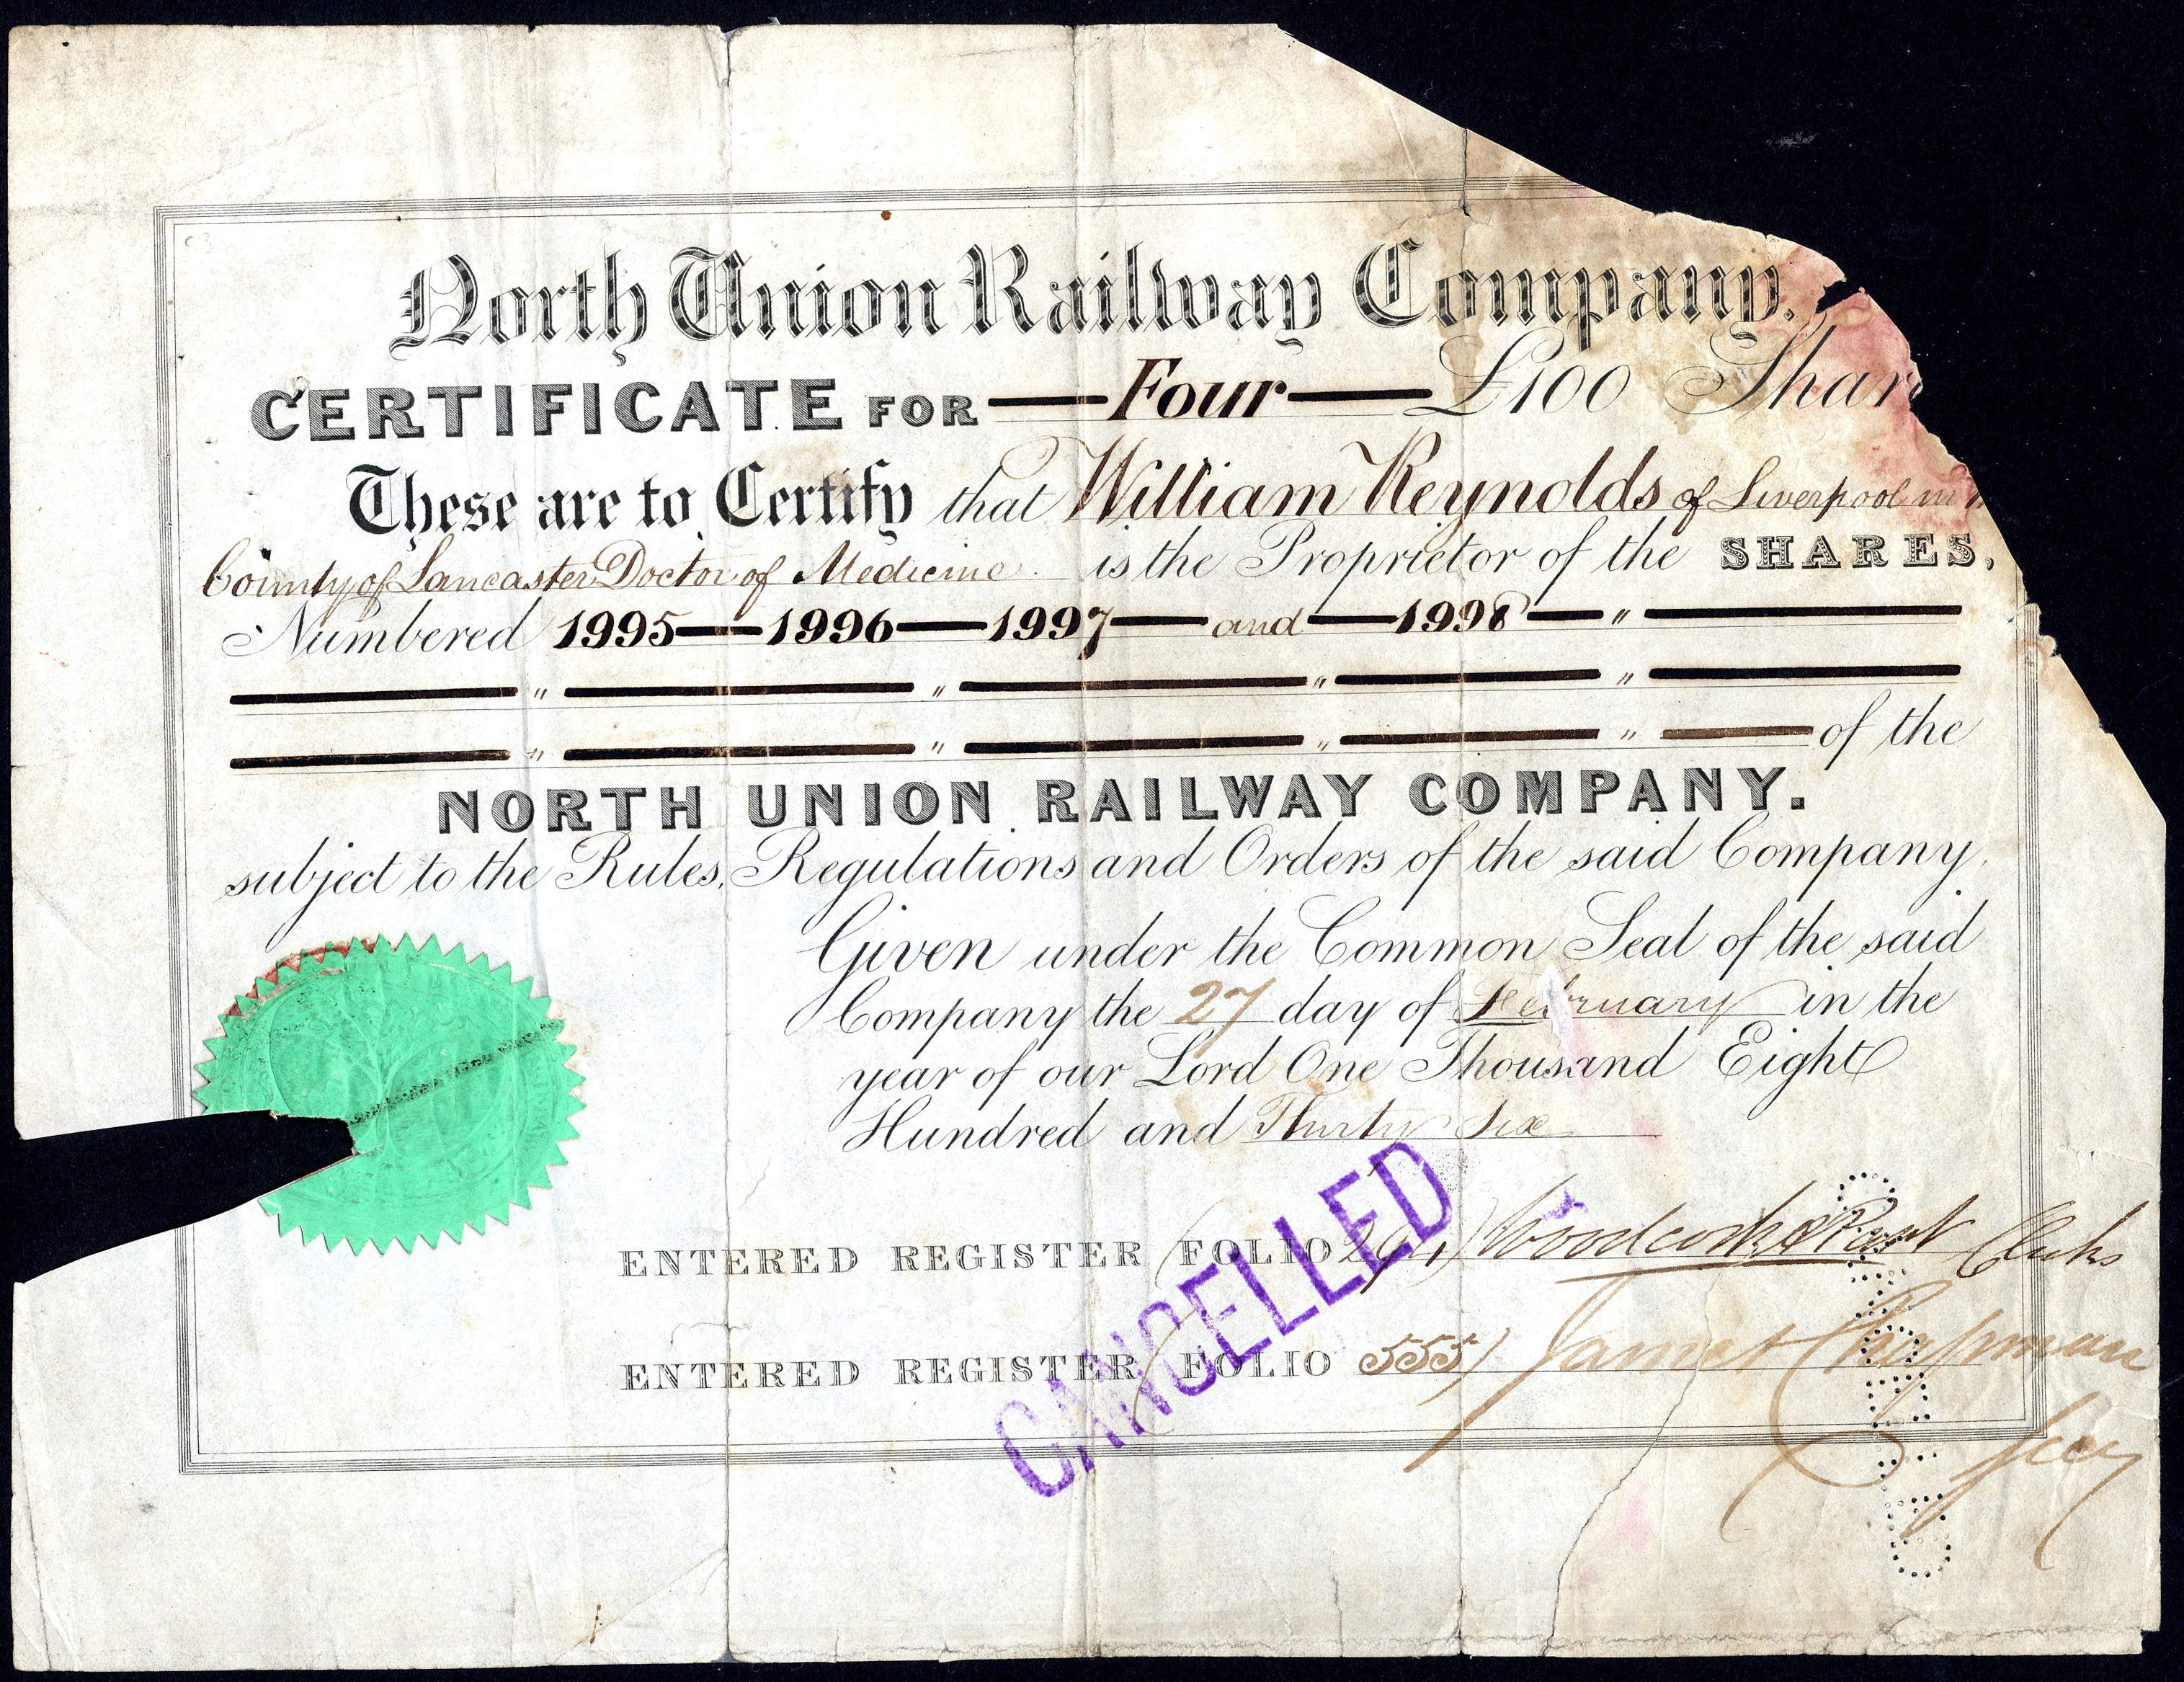 North Union Railway Company.
CERTIFICATE FOR — Four — £100 Shar
These are to Certify that William Reynolds of Liverpool in
County of Lancaster Doctor of Medicine is the Proprietor of the SHARES,
Numbered 1995 — 1996 — 1997 — and — 1998 — " —
— " — " — " — " —
— " — " — " — " — of the
NORTH UNION RAILWAY COMPANY.
subject to the Rules, Regulations and Orders of the said Company.
Given under the Common Seal of the said
Company the 27 day of February in the
year of our Lord One Thousand Eight
Hundred and Thirty Six
ENTERED REGISTER (FOLIO 294) Woodcock & Part Clerks
ENTERED REGISTER FOLIO 555) James Chapman
Secy
CANCELLED